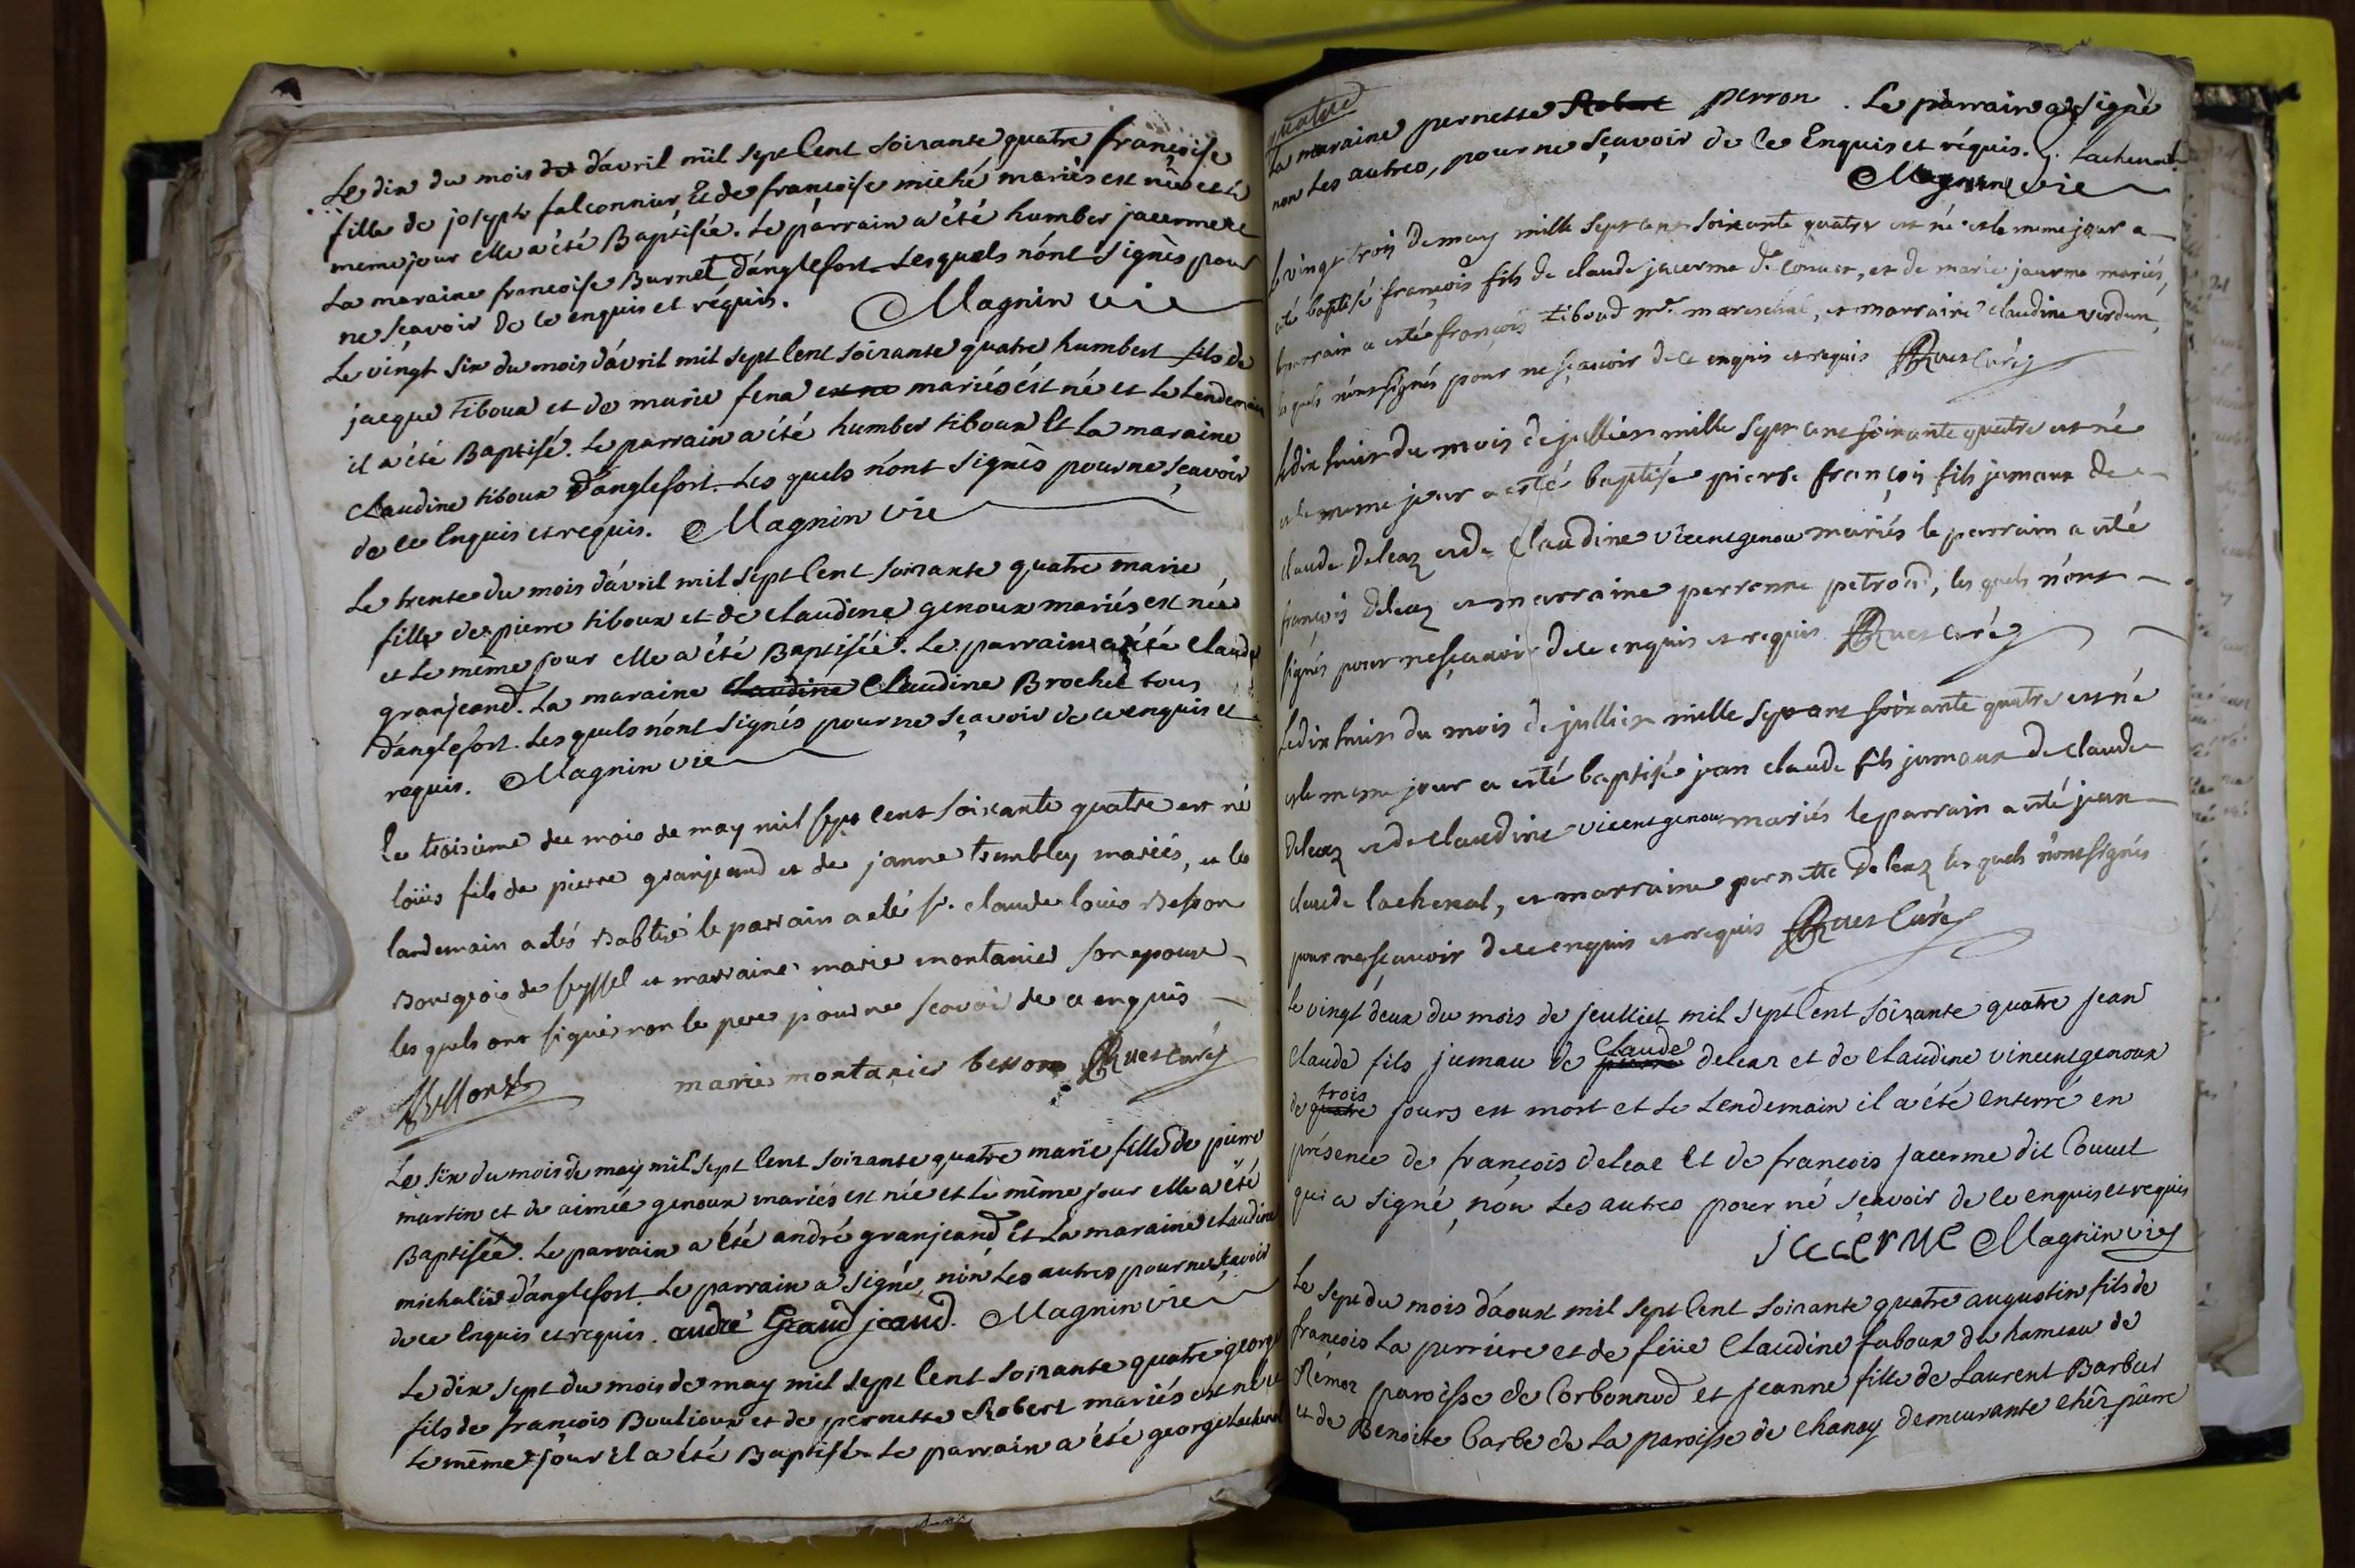 Le dix du mois de d'avril mil sept Cent soixante quatre françoise
fille de joseph falconnier Et de françoise miché mariés est née et le
meme jour elle a été Baptisée. Le parrain a été humber jacerme et
La maraine francoise Burnet d'anglefort Lesquels n'ont signés pour
ne sçavoir de ce enquis et réquis. Magnin vie
Le vingt six du mois d'avril mil sept Cent soixante quatre humbert fils de
jacque tiboux et de marie fena est ne mariés est né et Le Lendemain
il a été Baptisé. Le parrain a été humber tiboux Et La maraine
Claudine tiboux d'anglefort. Les quels n'ont signés pour ne sçavoir
de ce Enquis et requis. Magnin vie
Le trente du mois d'avril mil sept Cent soixante quatre marie
fille de pierre tiboux et de Claudine genoux mariés est née
et Le même jour elle a été Baptisée. Le parrain a été Claude
granjeand. La maraine Claudine Claudine Brochet tous
d'anglefort. Les quels n'ont signés pour ne sçavoir de ce enquis et
requis. Magnin vie
Le troisieme du mois de may mil sept cent soixante quatre est né
loüis fils de pierre granjeand et de janne trembley mariés, et le
landemain a etés Babtisé le parrain a eté sr. claude louis Besson
Bourgeois de seyssel et marraine marie montanier son epouse
les quels ont signés non le pere pour ne scavoir de ce enquis
Besson marie montanier besson Ruet Curé
Le six du mois de may mil sept Cent soixante quatre marie fille de pierre
martin et de aimée genoux mariés est née et Le même jour elle a été
Baptisée. Le parrain a été andré granjeand Et La maraine claudine
michalié d'anglefort Le parrain a signé, non Les autres pour ne sçavoir
de ce Enquis et requis. andré Grand jeand. Magnin vie
Le dix sept du mois de may mil sept Cent soixante quatre george
fils de francois Boulioux et de pernette Robert mariés est né et
Le même jour il a été Baptisé Le parrain a été george Lachenal
quatre
La maraine pernette Robert perron. Le parrain a signé
non Les autres, pour ne sçavoir de ce Enquis et réquis. g. Lachenal
Magnin vie
Le vingt trois de may mille sept cent soixante quatre est né et le meme jour a
eté baptisé françois fils de claude jacerme dt. Couuet, et de marie jaurme mariés,
le parrain a estée françois tiboud me. mareschal, et marraine claudine verdun,
les quels n'ont signés pour ne sçavoir de ce enquis et requis Ruet Curé
Le dix huit du mois de jullier mille sept cent soixante quatre est né
et le meme jour a esté baptisé pierre françois fils jumaux de
claude deleaz et de Claudine vicentgenou mariés le parrain a esté
françois deleaz et marraine perronne petroud, les quels n'ont
signés pour ne sçavoir de ce enquis et requis Ruet Curé
Le dix huit du mois de jullier mille sept cent soixante quatre est né
et le meme jour a esté baptisé jean claude fils jumaux de claude
deleaz et de claudine vicentgenou mariés le parrain a esté jean
claude lachenal, et marraine pernette deleaz les quels n'ont signés
pour ne sçavoir de ce enquis et requis Ruet Curé
Le vingt deux du mois de jeulliet mil sept Cent soixante quatre jean
Claude fils jumau de pierre Claude deleaz et de Claudine vincentgenoux
de quatre trois jours est mort et Le Lendemain il a été enterré en
présence de françois deleae Et de francois jacerme dit Couuet
qui a signé, non Les autres pour ne sçavoir de ce enquis et requis
jacerme Magnin vie
Le sept du mois d'aoust mil sept Cent soixante quatre augustin fils de
françois La perriere et de feüe Claudine faboux du hameau de
Rémoz paroisse de Corbonnod et jeanne fille de Laurent Barbet
et de Benoite Carbe de La paroisse de Chanay demeurante chéz pierre